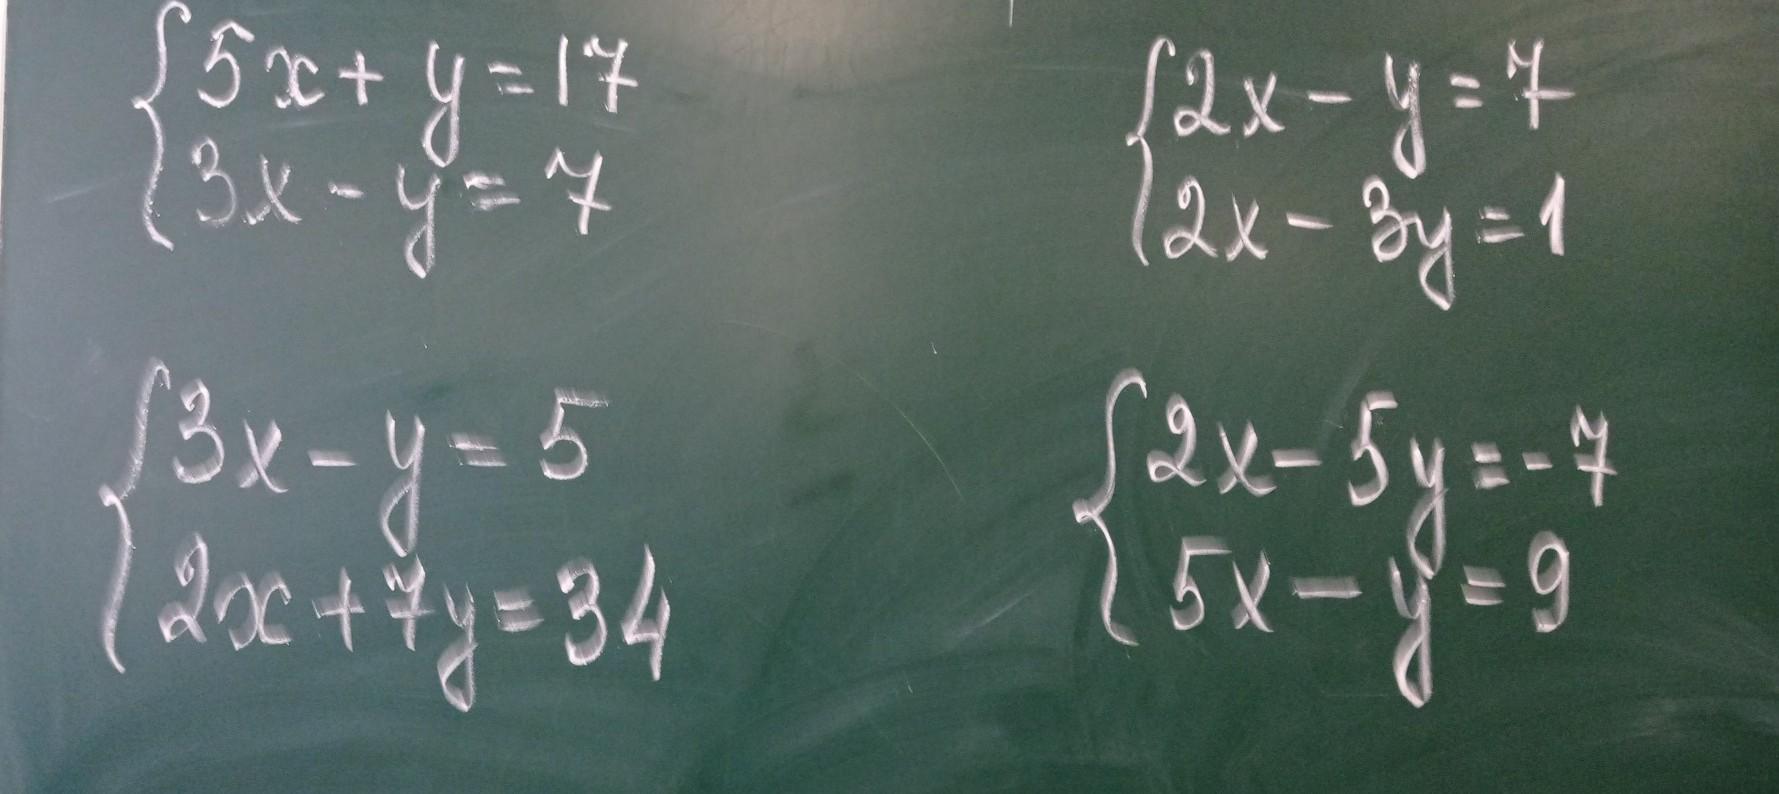 5x + y = 17
3x - y = 7
2x - y = 7
2x - 3y = 1
3x - y = 5
2x + 7y = 34
2x - 5y = -7
5x - y = 9